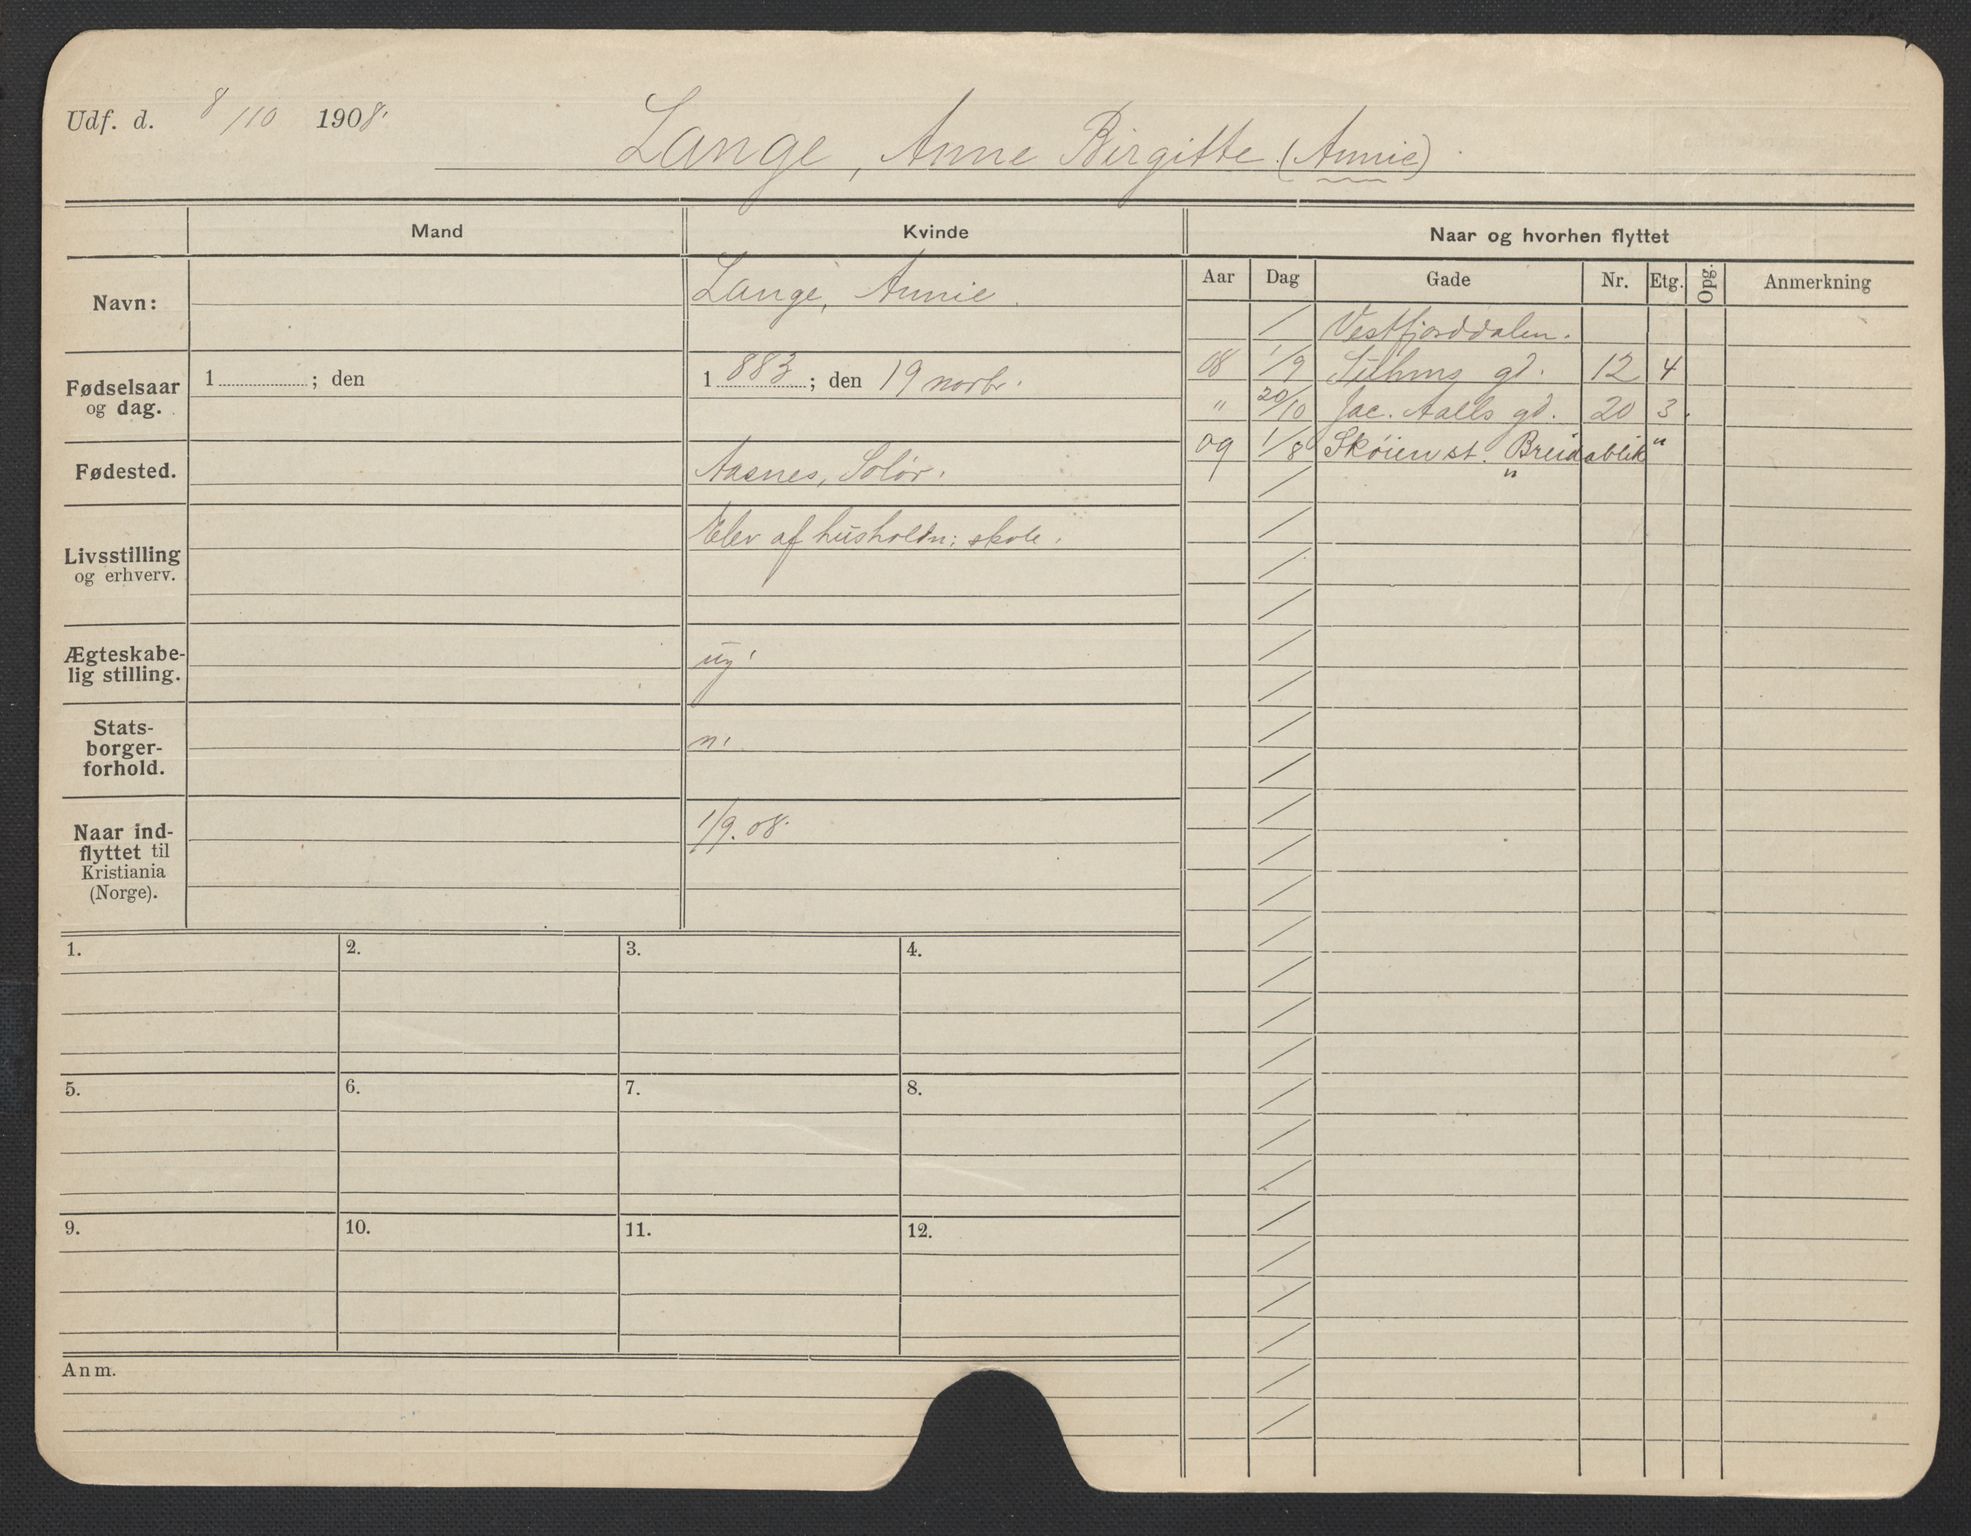 Udf. d. 8/10 1908.
Lange, Anne Birgitte. (Annie)
Mand
Kvinde
Naar og hvorhen flyttet
Aar Dag Gade Nr. Etg. Opg. Anmerkning
Navn:
Lange, Annie.
Fødselsaar
og dag.
1 ; den
1 883 ; den 19 novbr.
Fødested.
Aasnes, Solør.
Livsstilling
og erhverv.
Elev af husholdn: skole.
Ægteskabe-
lig stilling.
ug.
Stats-
borger-
forhold.
n.
Naar ind-
flyttet til
Kristiania
(Norge).
1/9. 08.
/ Vestfjorddalen.
08 1/9 gd. 12 4
" 20/10 Jac. Aalls gd. 20 3.
09 1/8 Skøien st. "Breidablik"
1.
2.
3.
4.
5.
6.
7.
8.
9.
10.
11.
12.
Anm.